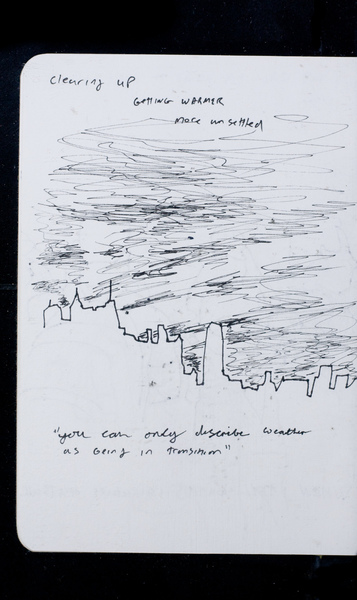 Clearing up
Getting WARMER
More unsettled
"you can only describe weather
as being in transition"